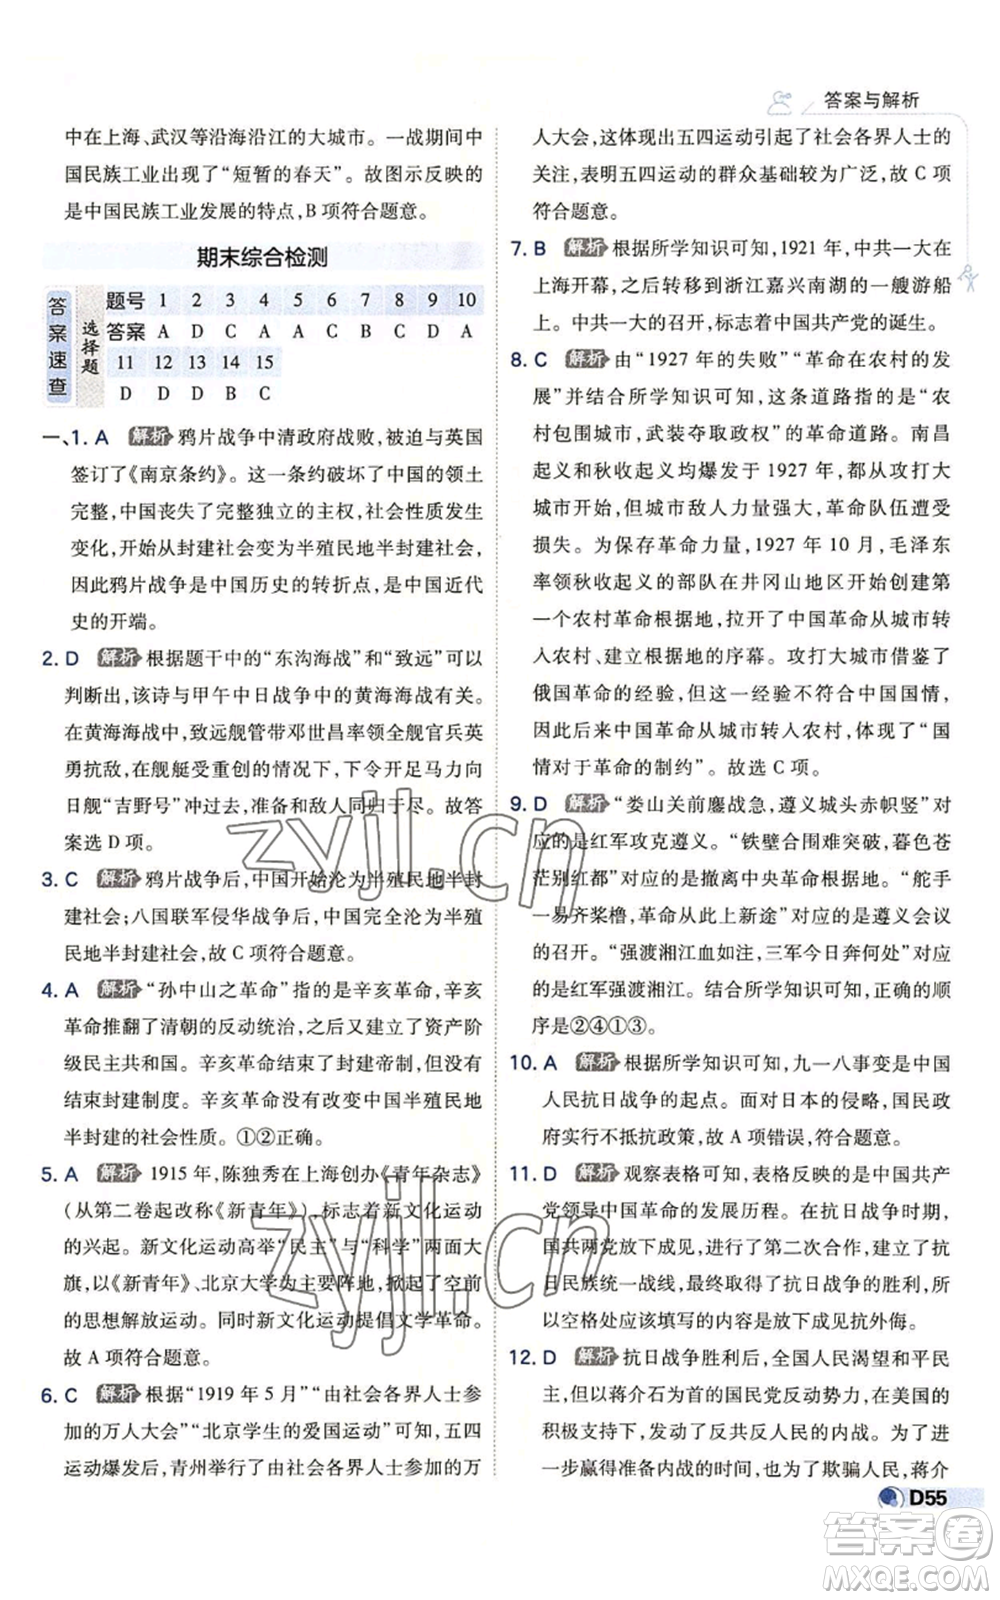 答案与解析
中在上海、武汉等沿海沿江的大城市。一战期间中
国民族工业出现了“短暂的春天”。故图示反映的
是中国民族工业发展的特点，B项符合题意。
期末综合检测
答案速查
选择题
题号 1 2 3 4 5 6 7 8 9 10
答案 A D C A A C B C D A
11 12 13 14 15
D D D B C
一、1. A 解析 鸦片战争中清政府战败，被迫与英国
签订了《南京条约》。这一条约破坏了中国的领土
完整，中国丧失了完整独立的主权，社会性质发生
变化，开始从封建社会变为半殖民地半封建社会，
因此鸦片战争是中国历史的转折点，是中国近代
史的开端。
2. D 解析 根据题干中的“东沟海战”和“致远”可以
判断出，该诗与甲午中日战争中的黄海海战有关。
在黄海海战中，致远舰管带邓世昌率领全舰官兵英
勇抗敌，在舰艇受重创的情况下，下令开足马力向
日舰“吉野号”冲过去，准备和敌人同归于尽。故答
案选D项。
3. C 解析 鸦片战争后，中国开始沦为半殖民地半封
建社会；八国联军侵华战争后，中国完全沦为半殖
民地半封建社会，故C项符合题意。
4. A 解析 “孙中山之革命”指的是辛亥革命，辛亥
革命推翻了清朝的反动统治，之后又建立了资产阶
级民主共和国。辛亥革命结束了封建帝制，但没有
结束封建制度。辛亥革命没有改变中国半殖民地
半封建的社会性质。①②正确。
5. A 解析 1915年，陈独秀在上海创办《青年杂志》
（从第二卷起改称《新青年》），标志着新文化运动
的兴起。新文化运动高举“民主”与“科学”两面大
旗，以《新青年》、北京大学为主要阵地，掀起了空前
的思想解放运动。同时新文化运动提倡文学革命。
故A项符合题意。
6. C 解析 根据“1919年5月”“由社会各界人士参
加的万人大会”“北京学生的爱国运动”可知，五四
运动爆发后，青州举行了由社会各界人士参加的万
人大会，这体现出五四运动引起了社会各界人士的
关注，表明五四运动的群众基础较为广泛，故C项
符合题意。
7. B 解析 根据所学知识可知，1921年，中共一大在
上海开幕，之后转移到浙江嘉兴南湖的一艘游船
上。中共一大的召开，标志着中国共产党的诞生。
8. C 解析 由“1927年的失败”“革命在农村的发
展”并结合所学知识可知，这条道路指的是“农
村包围城市，武装夺取政权”的革命道路。南昌
起义和秋收起义均爆发于1927年，都从攻打大
城市开始，但由于城市敌人力量强大，革命队伍遭受
损失。为保存革命力量，1927年10月，毛泽东
率领秋收起义的部队在井冈山地区开始创建第
一个农村革命根据地，拉开了中国革命从城市转
入农村建立根据地的序幕。攻打大城市借鉴了
俄国革命的经验，但这一经验不符合中国国情，
后来中国革命从城市转入农村，体现了“国
情对于革命的制约”。故选C项。
9. D 解析 “娄山关前鏖战急，遵义城头赤帜竖”对
应的是红军攻克遵义。“铁壁合围难突破，暮色苍
茫别红都”对应的是撤离中央革命根据地。“舵手
一易齐桨橹，革命从此上新途”对应的是遵义会议
的召开。“强渡湘江血如注，三军今日奔何处”对应
的是红军强渡湘江。结合所学知识可知，正确的顺
序是②④①③。
10. A 解析 根据所学知识可知，九一八事变是中国
人民抗日战争的起点。面对日本的侵略，国民政
府实行不抵抗政策，故A项错误，符合题意。
11. D 解析 观察表格可知，表格反映的是中国共产
党领导中国革命的发展历程。在抗日战争时期，
国共两党放下成见，进行了第二次合作，建立了抗
日民族统一战线，最终取得了抗日战争的胜利，所
以空格处应该填写的内容是放下成见，共抗外侮。
12. D 解析 抗日战争胜利后，全国人民渴望和平民
主，但以蒋介石为首的国民党反动势力，在美国的
积极支持下，妄图发动反共反人民的内战。为了进
一步赢得准备内战的时间，也为了欺骗人民，蒋介
D55
zyjl.cn
zyjl.cn
答案卷
MXQE.COM